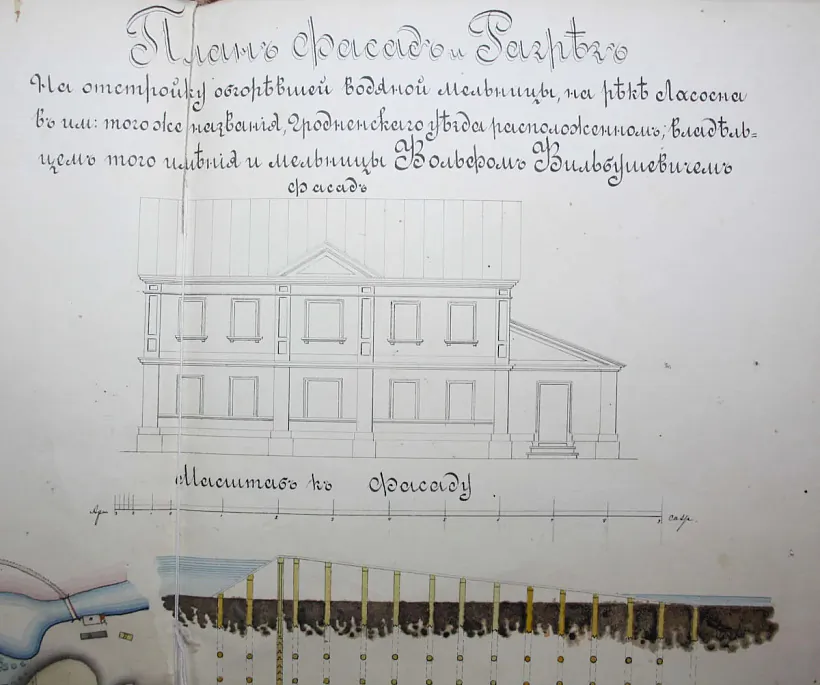 Планъ фасадъ и Разрѣзъ
На отстройку обгорѣвшей водяной мельницы, на рѣкѣ Лососна
въ им: того же названія, Гродненскаго уѣзда расположенном; владѣль=
цемъ того имѣнія и мельницы Вольфомъ Вильбушевичемъ
фасадъ
Масштабъ къ фасаду
Ар.
саж.